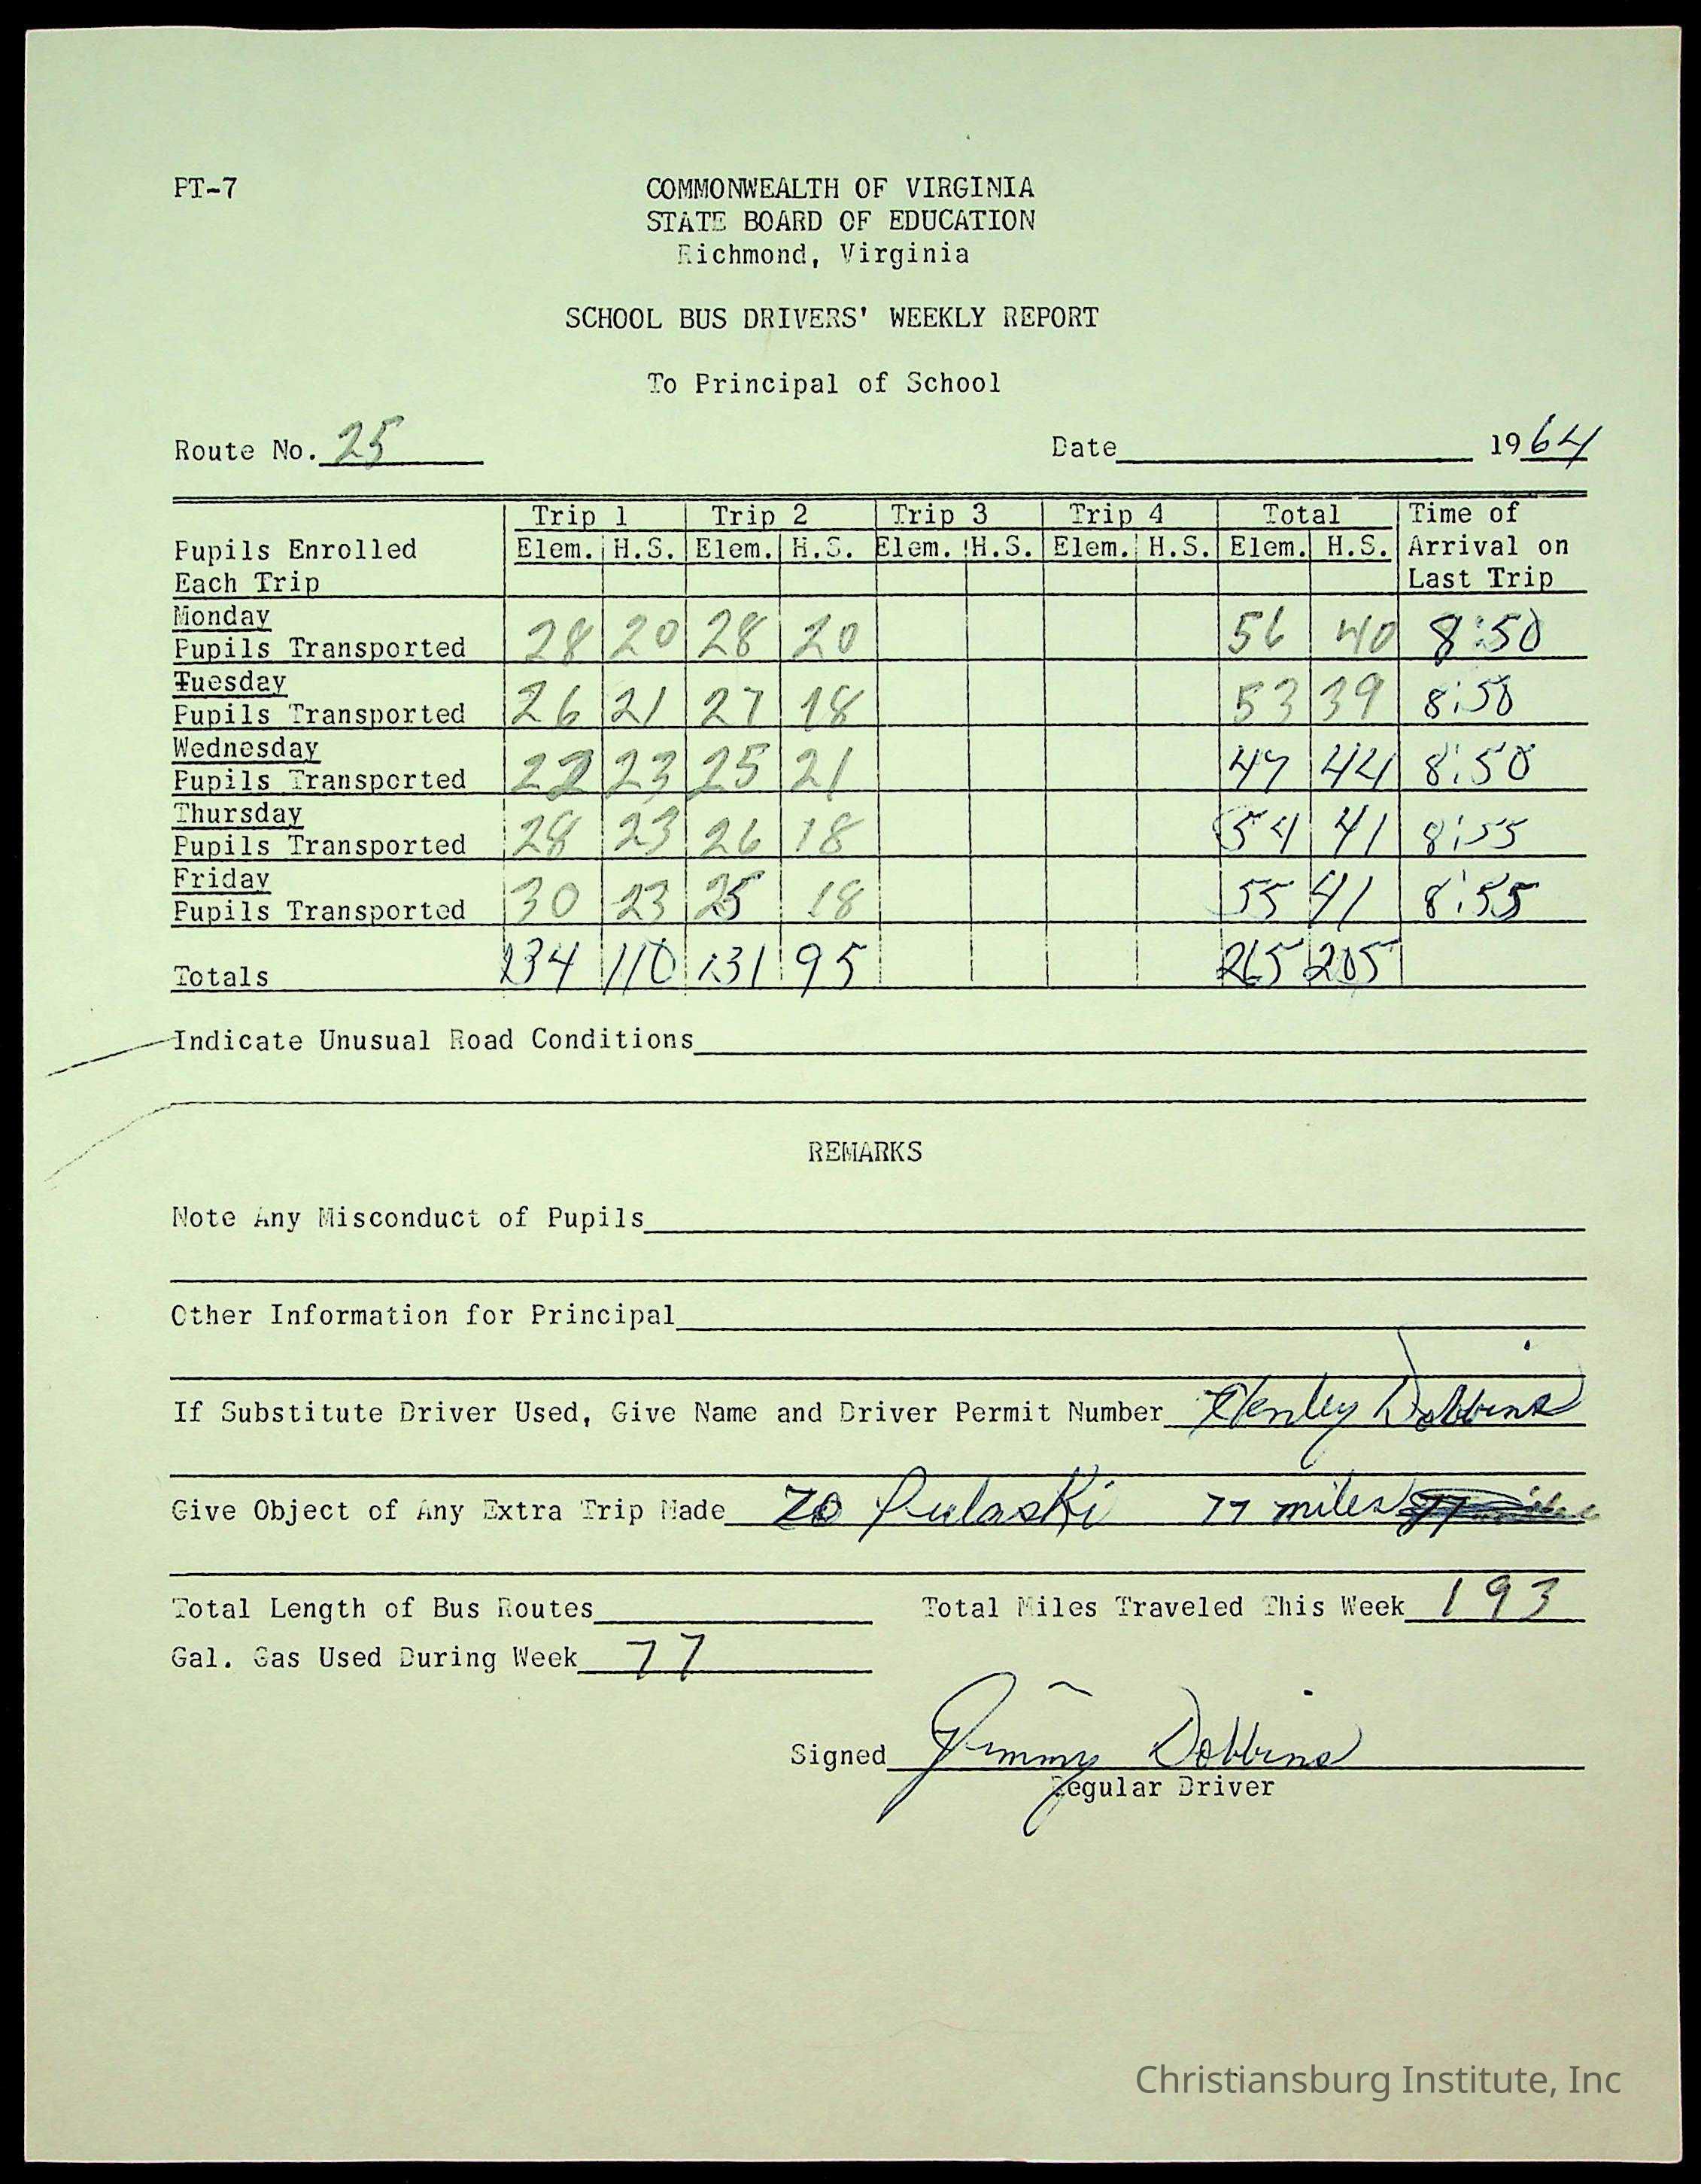 PT-7
COMMONWEALTH OF VIRGINIA
STATE BOARD OF EDUCATION
Richmond, Virginia
SCHOOL BUS DRIVERS' WEEKLY REPORT
To Principal of School
Route No. 25 Date 1964
Trip 1 Trip 2 Trip 3 Trip 4 Total Time of
Pupils Enrolled Elem. H.S. Elem. H.S. Elem. H.S. Elem. H.S. Elem. H.S. Arrival on
Each Trip Last Trip
Monday
Pupils Transported 28 20 28 20 56 40 8:50
Tuesday
Pupils Transported 26 21 27 18 53 39 8:50
Wednesday
Pupils Transported 22 23 25 21 47 44 8:50
Thursday
Pupils Transported 28 23 26 18 54 41 8:55
Friday
Pupils Transported 30 23 25 18 55 41 8:55
Totals 134 110 131 95 265 205
Indicate Unusual Road Conditions
REMARKS
Note Any Misconduct of Pupils
Other Information for Principal
If Substitute Driver Used, Give Name and Driver Permit Number Dobbins
Give Object of Any Extra Trip Made To Pulaski 77 miles
Total Length of Bus Routes Total Miles Traveled This Week 193
Gal. Gas Used During Week 77
Signed Jimmy Dobbins
Regular Driver
Christiansburg Institute, Inc